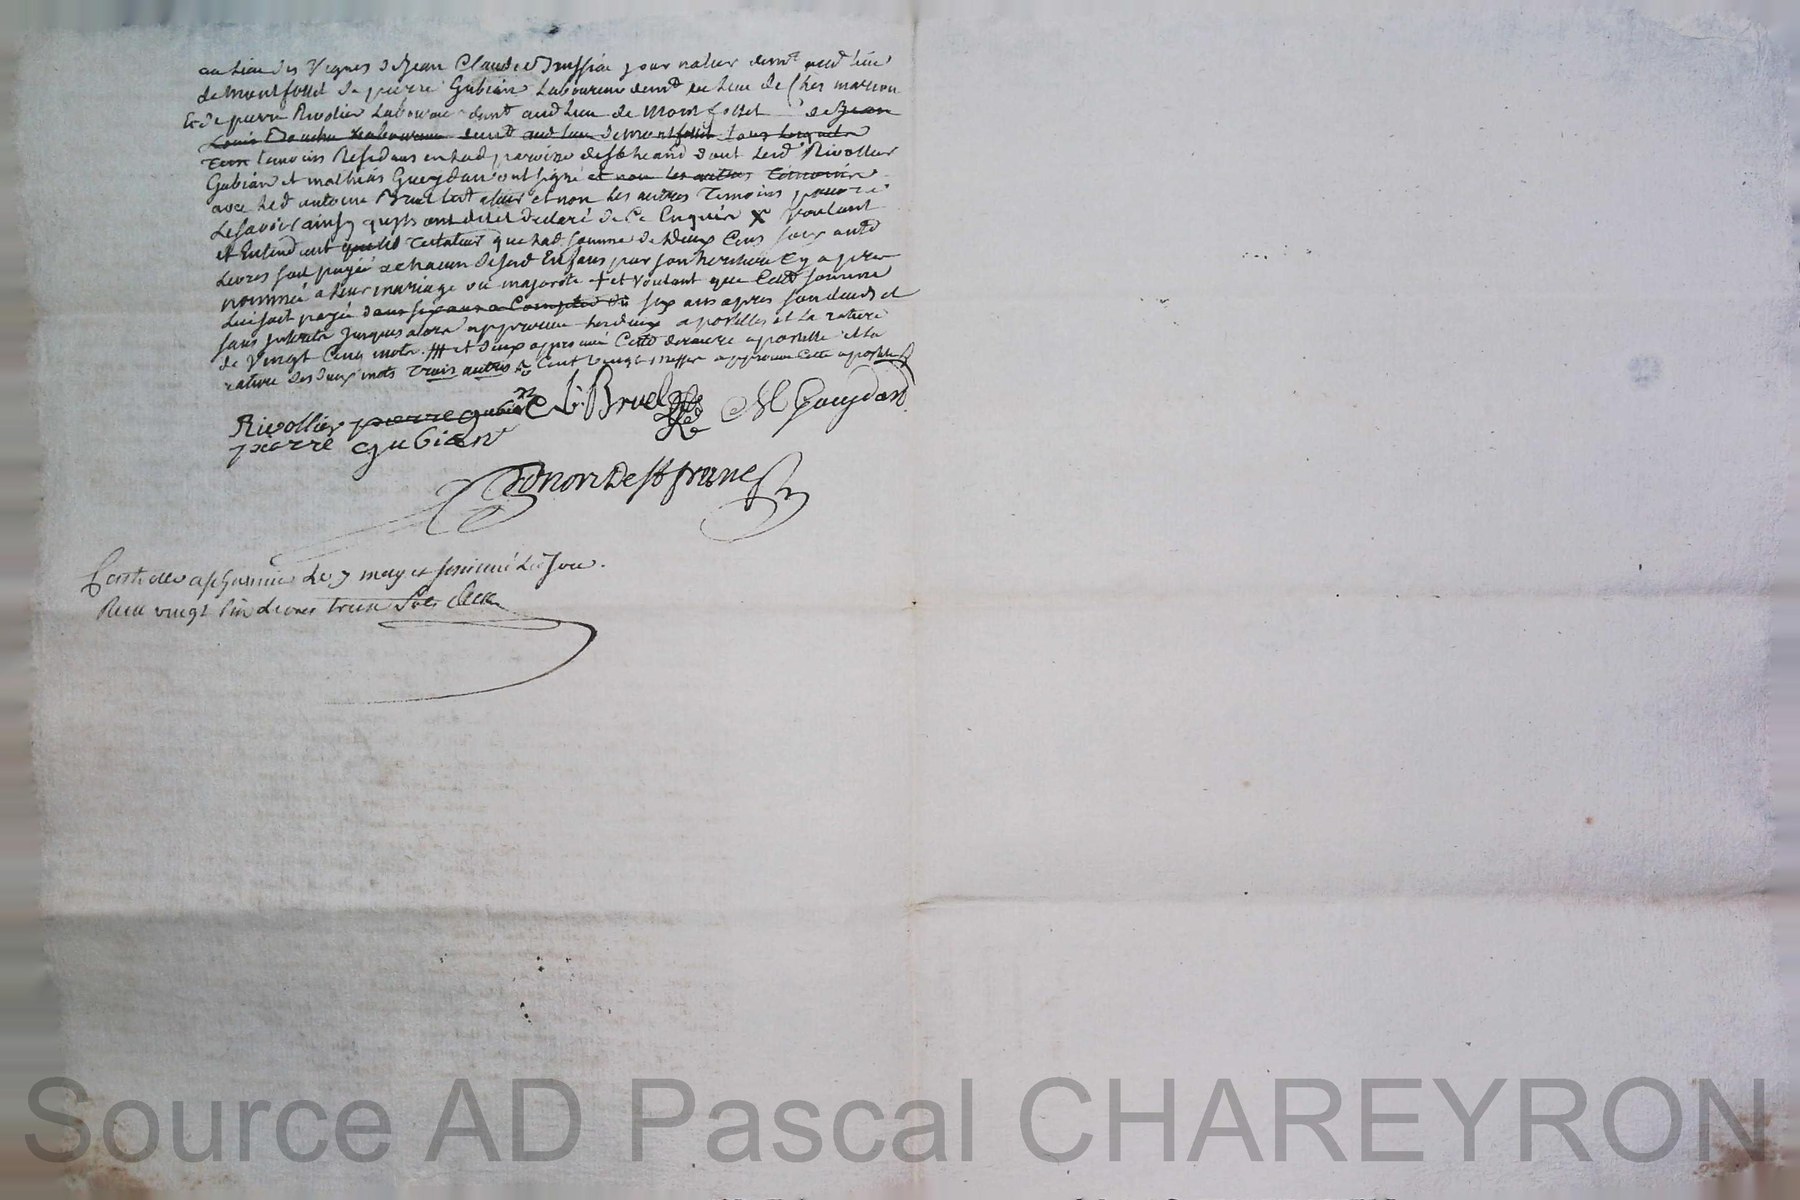 au lieu des Vignes de Jean Claude journalier demt aud lieu
de montfollet de pierre Gubian Laboureur demt au lieu de Chez marcou
Et de pierre Rivolier Laboureur demt aud lieu de Montfollet de Jean
Louis Laboureur demt aud lieu de montfollet tous lesquels
temoins Residans en lad paroisse dont led Rivollier
Gubian et mathias Gueydan ont signé et non les autres Temoins
avec led antoine Bruel et non les autres Temoins pour ne
Le savoir ainsy quils ont dit et declaré de ce Enquis X Voulant
et Entendant led Testateur que lad somme de deux Cens
Livres soit payée a chacun desd Enfans par son heritiere Cy apres
nommée a leur mariage ou majorité + et voulant que Cette somme
Lui soit payée dans six ans a Compter du six ans apres son deces et
sans interets jusques alors approuvé les deux apostilles et la rature
de Vingt Cinq mots # et deux approuvé Cette derniere apostille et la
rature des deux mots trois autres Cent vingt approuvé Cette apostille
Rivollier pierre gubian Bruel M Gueydan
pierre guBian
De st
Controlé le 7 may et insinué led Jour.
Recu vingt Livres treize sols
Source AD Pascal CHAREYRON